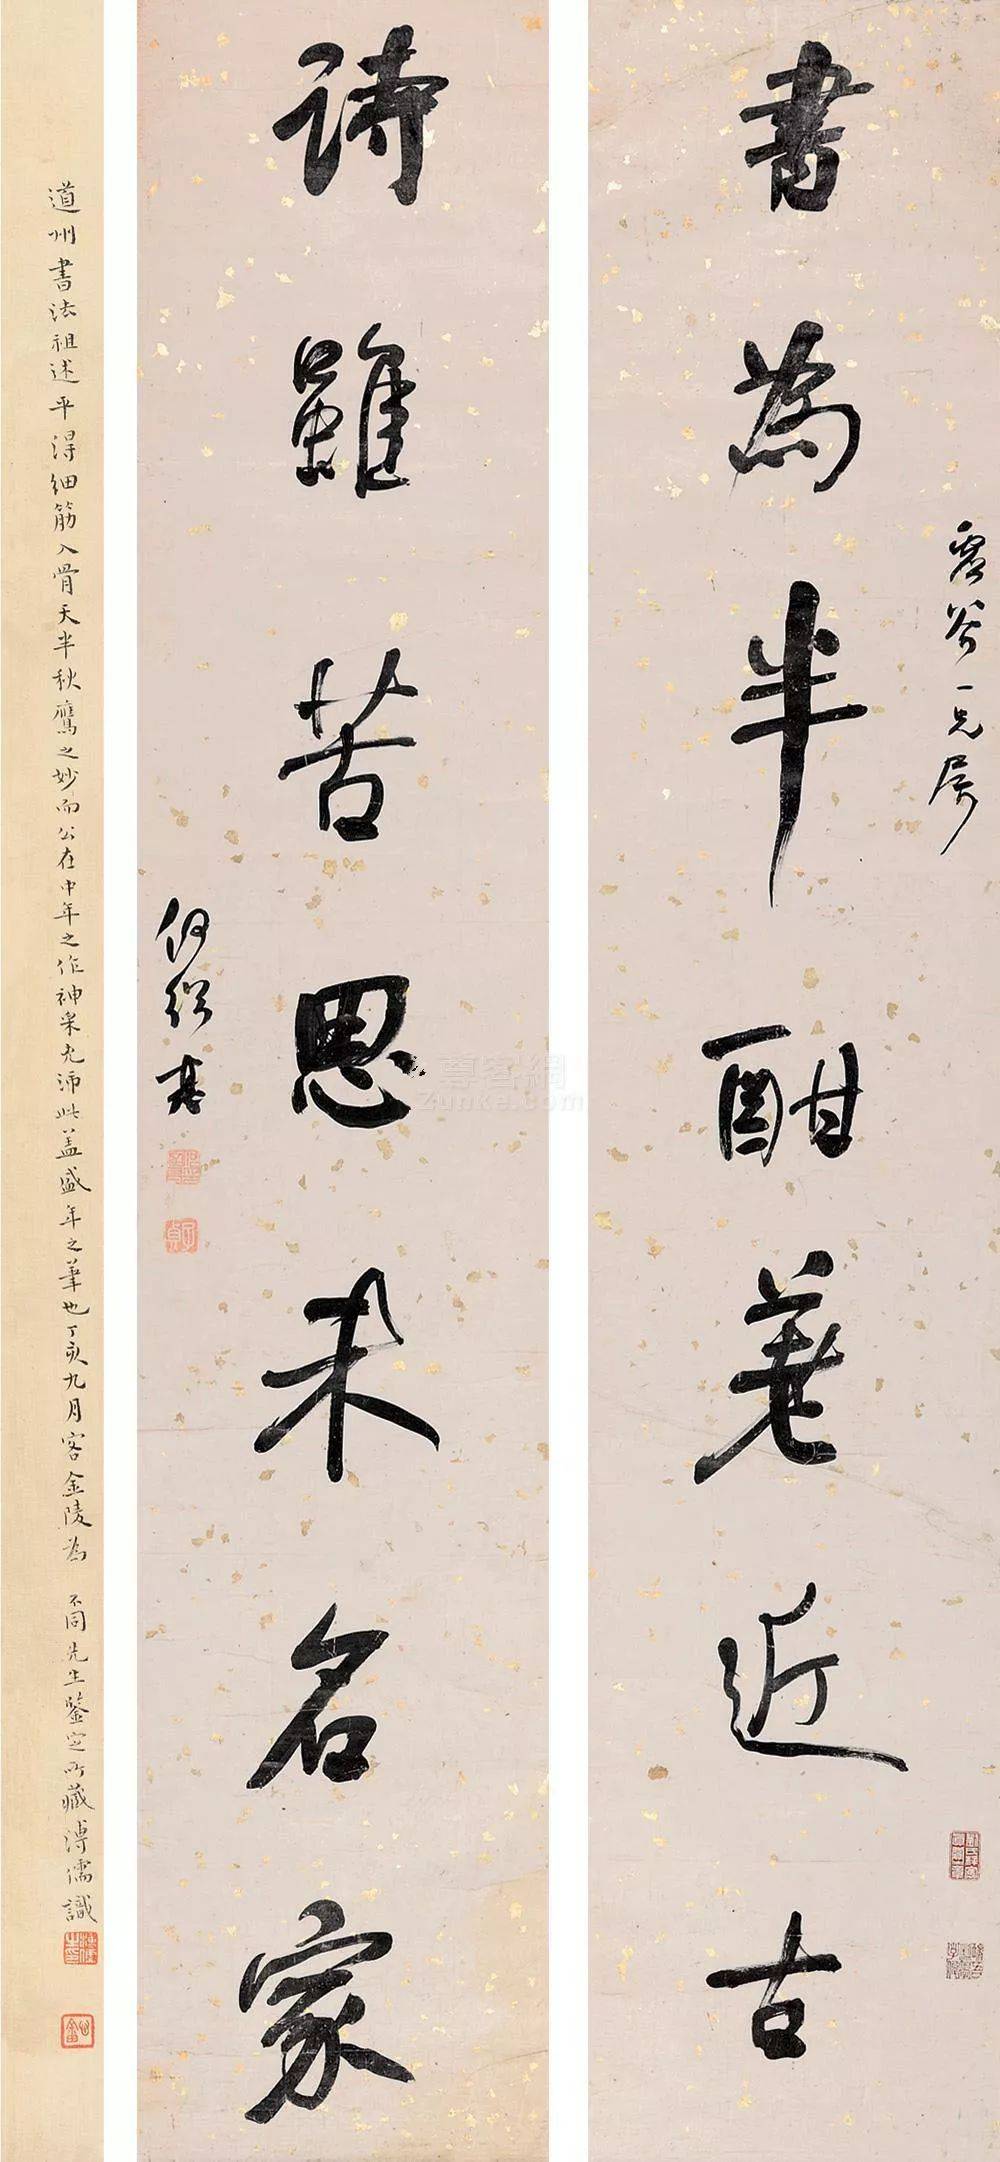 谷一兄屬
書為半酣差近古
詩雖苦思未名家
何紹基
子貞
道州書法祖述平得細筋入骨天半秋鷹之妙而公在中年之作神采尤沛此蓋盛年之筆也丁亥九月客金陵為 不同先生鑒定所藏溥儒識
溥儒之印
心畬
尊客網
Zunke.com